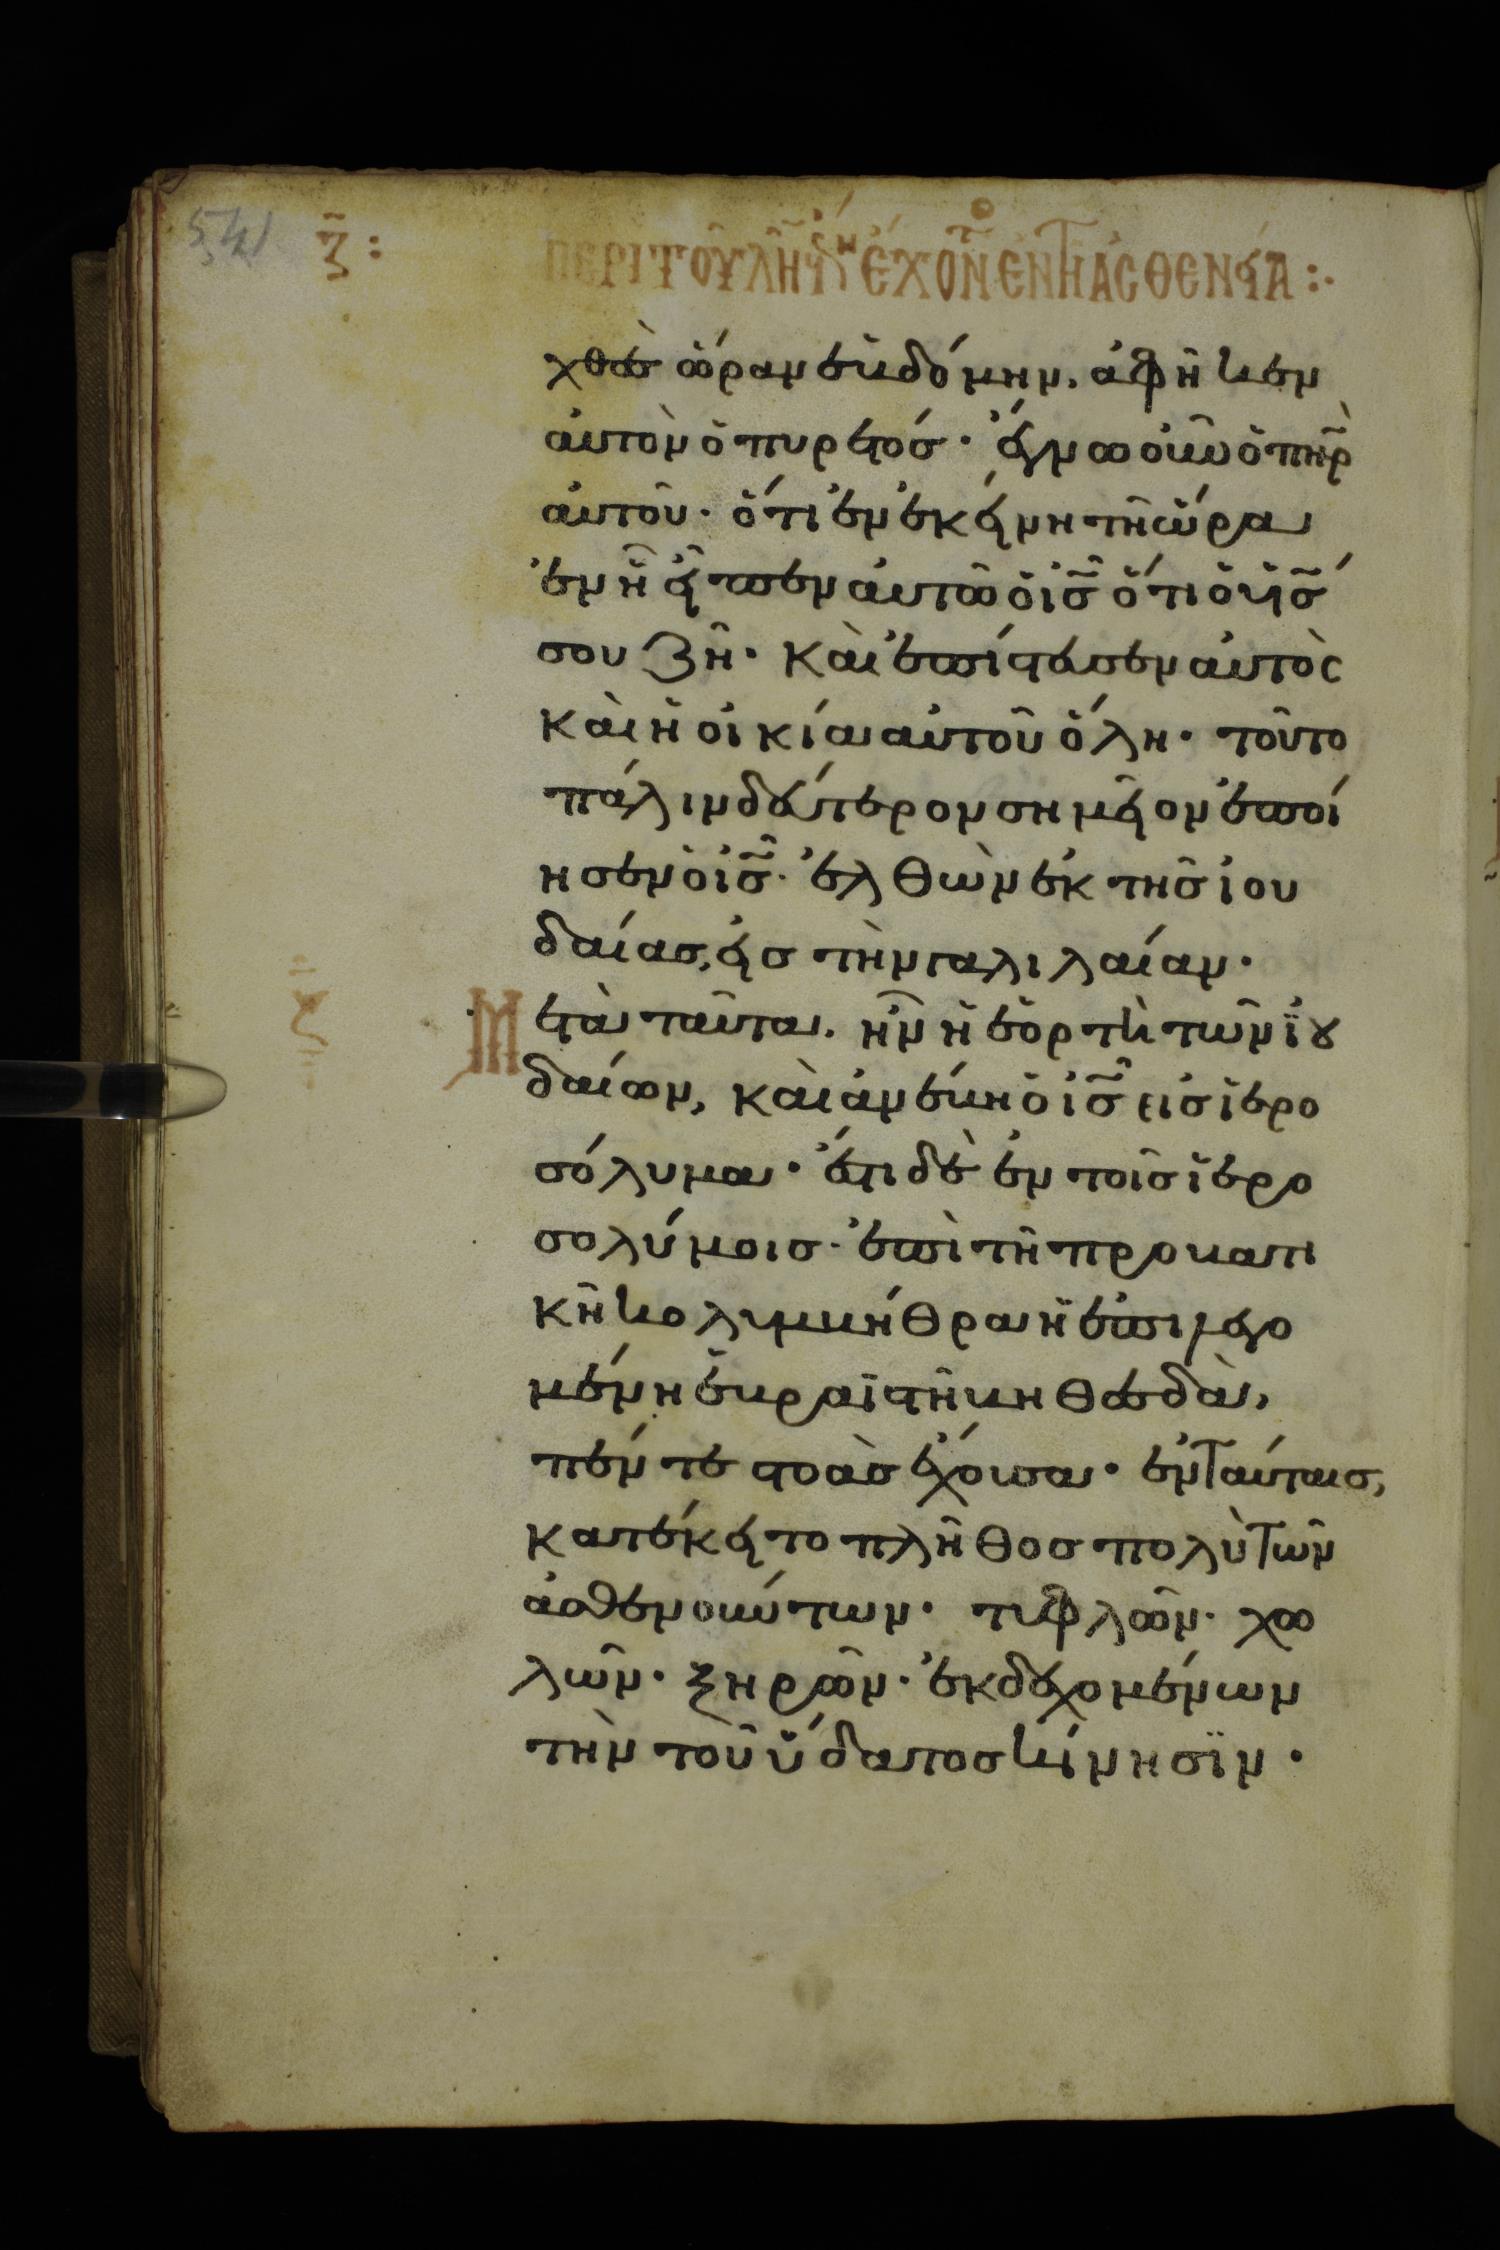 ζ: ΠΕΡΙ ΤΟΥ ΛΗ ἔΧΟΝ ἐΝ Τῆ ἈCΘΕΝΕΊΑ :·
χθὲσ ὥραν ἑβδόμην. ἀφῆκεν
αὐτὸν ὁ πυρετόσ· ἔγνω οὖν ὁ πὴρ
αὐτοῦ· ὅτι ἐν ἐκείνη τῆ ὥρα
ἐν ἧ εἶπεν αὐτῶ ὁ ἰσ ὅτι ὁ υἱόσ
σου ζῆ· καὶ ἐπίστευσεν αὐτὸς
καὶ ἡ οἰκία αὐτοῦ ὅλη· τοῦτο
πάλιν δεύτερον σημεῖον ἐποί
ησεν ὁ ἰσ· ἐλθὼν ἐκ τῆσ ἰου
δαίασ, εἰσ τὴν γαλιλαίαν·
Μετὰ ταῦτα. ἦν ἡ ἑορτὴ τῶν ἰȣ
δαίων, καὶ ἀνέβη ὁ ἰσ εἰσ ἱερο
σόλυμα· ἔστι δὲ ἐν τοῖσ ἱερο
σολύμοισ· ἐπὶ τῆ προβατι
κῆ κολυμβήθρα ἡ ἐπιλεγο
μένη ἑβραϊστὶ βηθεσδὰ,
πέντε στοὰσ ἔχουσα· ἐν ταύταισ,
κατέκειτο πλῆθοσ πολὺ τῶν
ἀσθενούντων· τυφλῶν· χω
λῶν· ξηρῶν· ἐκδεχομένων
τὴν τοῦ ὕδατοσ κίνησϊν·
ζ